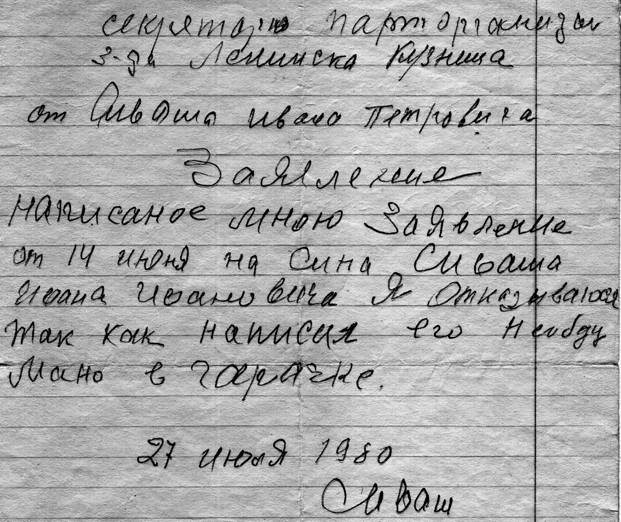 секретарю парторганизац
з-да Ленинска Кузница
от Сиваша Ивана Петровича
Заявление
Написаное мною Заявление
от 14 июня на Сина Сиваша
Ивана Ивановича Я отказиваюся
так как написал его необду
мано в гарячке.
27 июля 1980
Сиваш